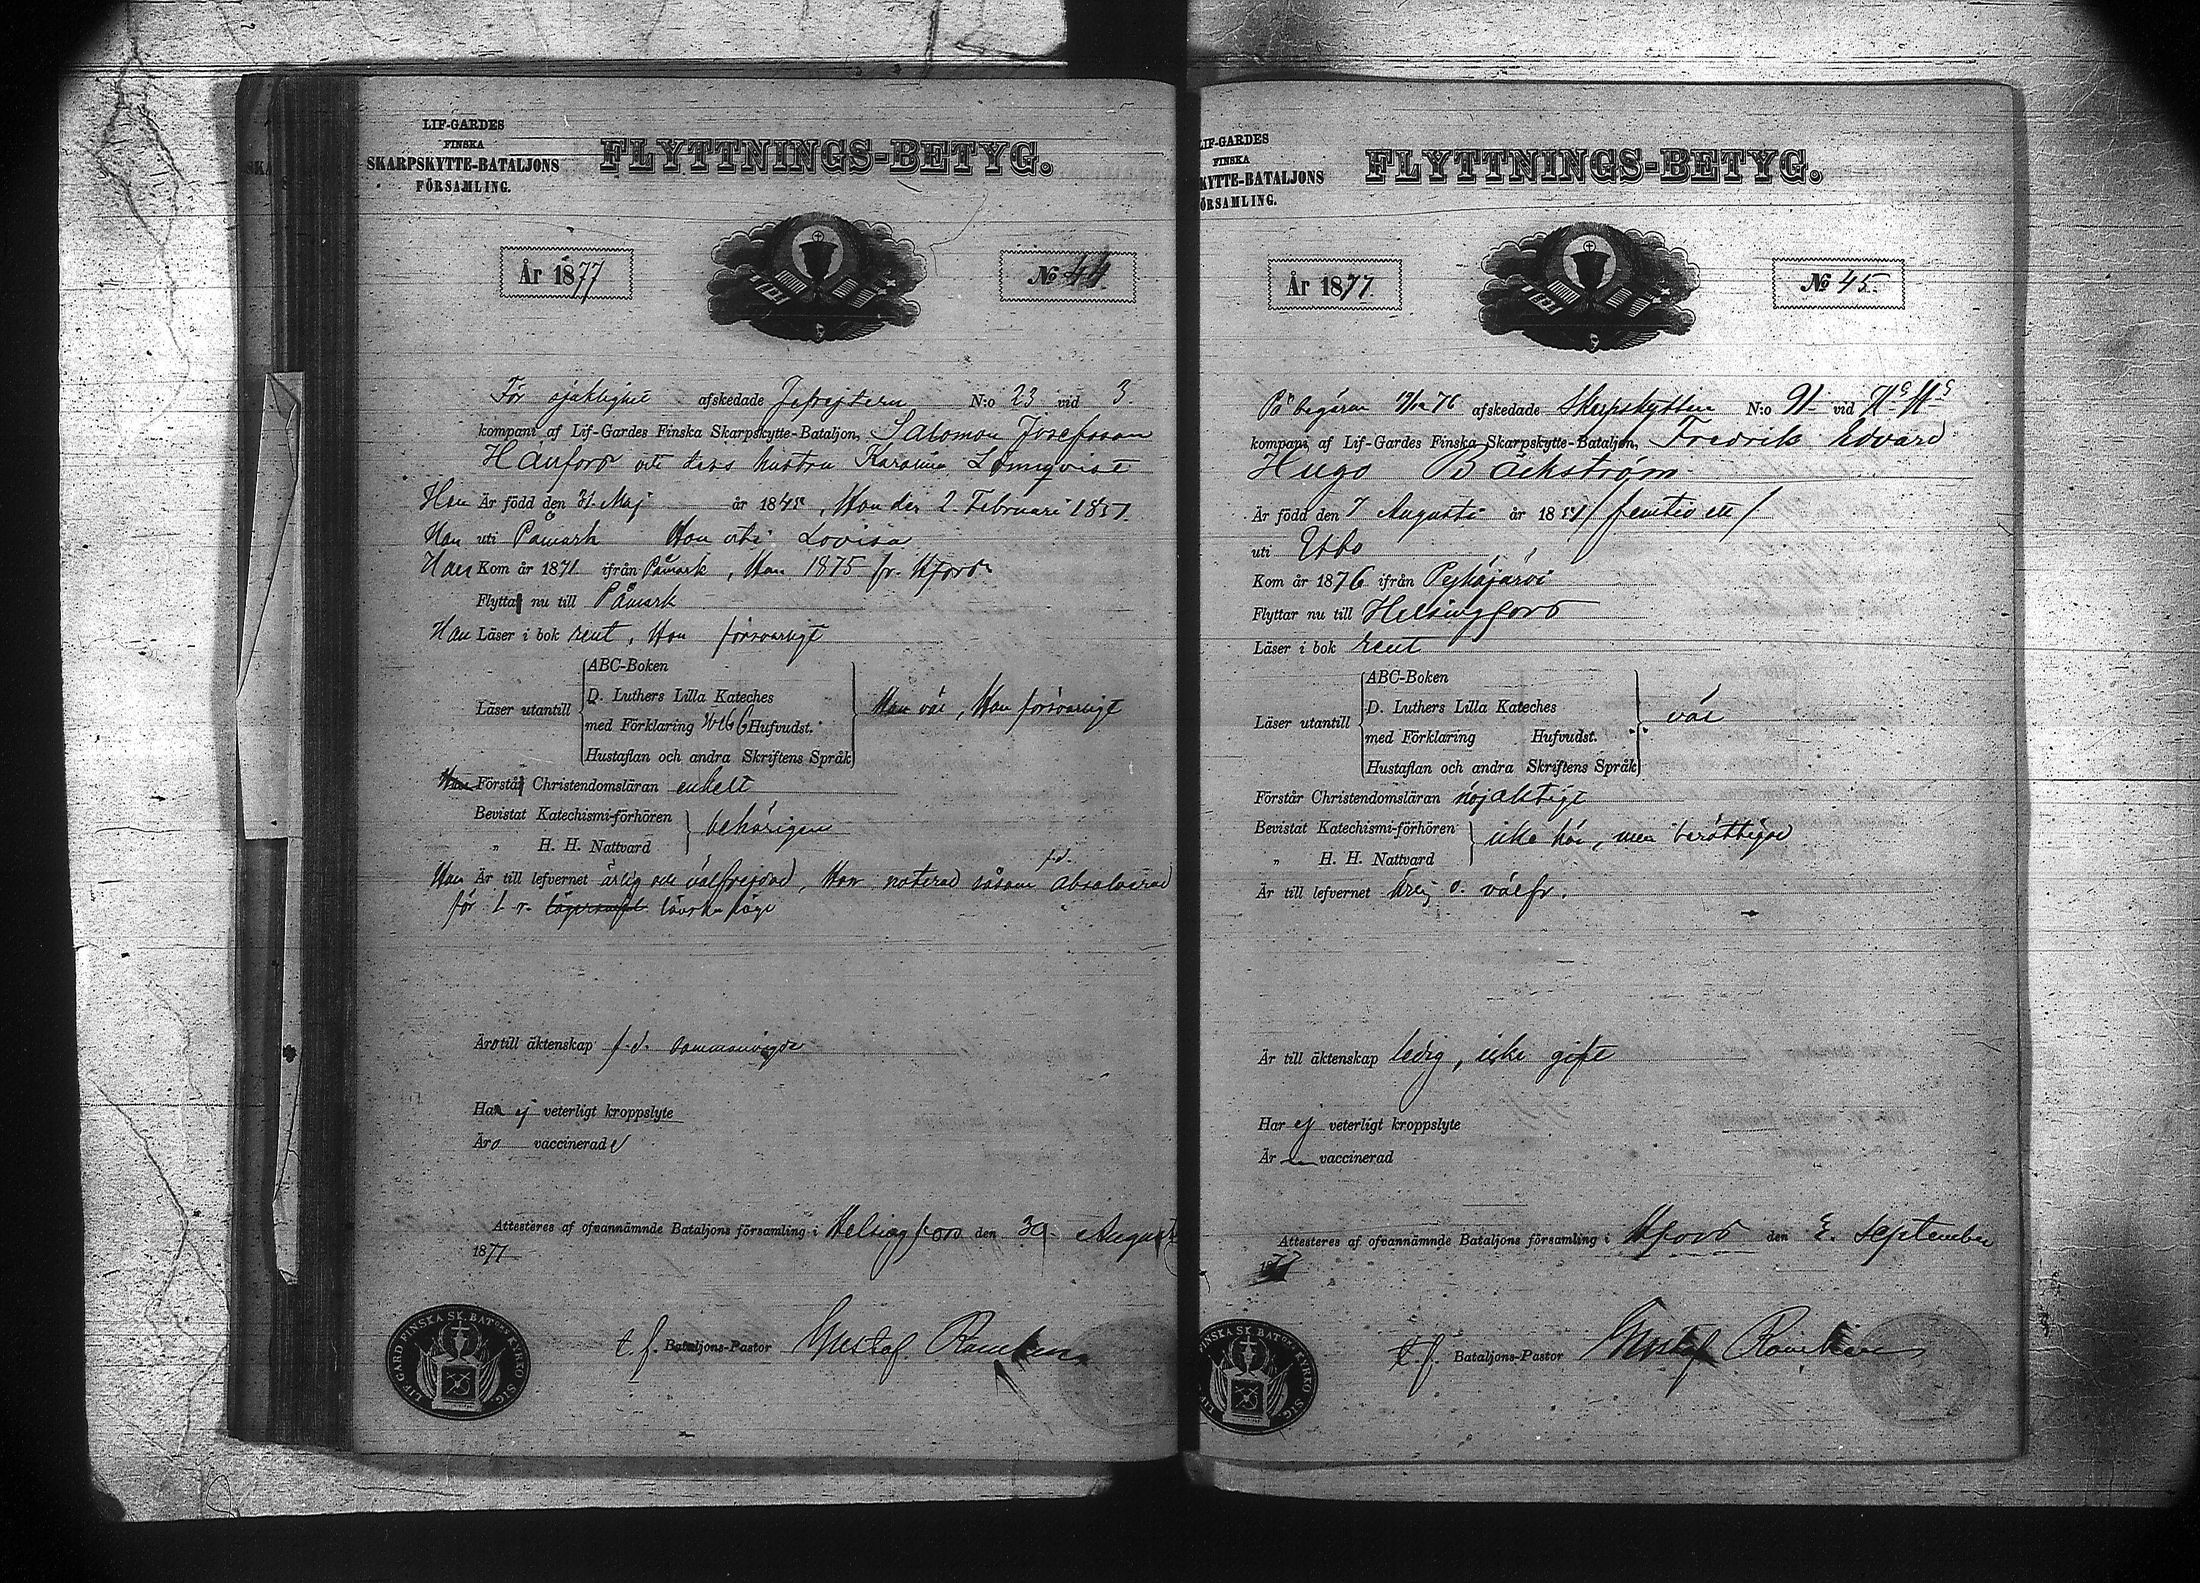 LIF-GARDES
FINSKA
SKARPSKYTTE-BATALJONS
FÖRSAMLING.
FLYTTNINGS-BETYG.
År 1877
No 44
För sjuklighet afskedade Jefrejtern N:o 23 vid 3
kompani af Lif-Gardes Finska Skarpskytte-Bataljon, Salomon Josefsson
Hanfors och dess hustru Karolina Lönnqvist
Han Är född den 31 Maj år 1845, Hon den 2. Februari 1851.
Han uti Påmark Hon uti Lovisa
Han Kom år 1871 ifrån Påmark, Hon 1875 fr. Hfors
Flytta nu till Påmark
Han Läser i bok rent, Hon försvarligt
ABC-Boken
D. Luthers Lilla Kateches
Läser utantill
med Förklaring Hufvudst.
Han väl, Hon försvarligt
Hustaflan och andra Skriftens Språk
Förstå Christendomsläran enkelt
Bevistat Katechismi-förhören
behörigen
„ H. H. Nattvard
Han Är till lefvernet ärlig och välfrejdad, Hon noterad såsom f.d. absolverad
för 1 r. lägersmål lönska läge
Äro till äktenskap f.d. sammanvigde
Ha ej veterligt kroppslyte
Äro vaccinerade
Attesteres af ofvannämnde Bataljons församling i Helsingfors den 30 Augusti
1877
t. f. Bataljons-Pastor Gustaf
LIF GARD FINSKA SK. BATns KYRKO STG.
LIF-GARDES
FINSKA
KYTTE-BATALJONS
ÖRSAMLING.
FLYTTNINGS-BETYG.
År 1877
No 45
På begäran 76 afskedade Skarpskytten N:o 91 vid Hs Hs
kompani af Lif-Gardes Finska Skarpskytte-Bataljon, Fredrik Edvard
Hugo Bäckström
Är född den 7 Augusti år 1851 /femtio ett/
uti Esbo
Kom år 1876 ifrån Pyhäjärvi
Flyttar nu till Helsingfors
Läser i bok rent
ABC-Boken
D. Luthers Lilla Kateches
Läser utantill
med Förklaring Hufvudst.
väl
Hustaflan och andra Skriftens Språk
Förstår Christendomsläran nöjaktigt
Bevistat Katechismi-förhören
icke här, men berättigad
„ H. H. Nattvard
Är till lefvernet ärlig o. välfr.
Är till äktenskap ledig, icke gift
Har ej veterligt kroppslyte
Är vaccinerad
Attesteres af ofvannämnde Bataljons församling i Hfors den September
1877
t. f. Bataljons-Pastor Gustaf
FINSKA SK. BATns KYRKO STG.